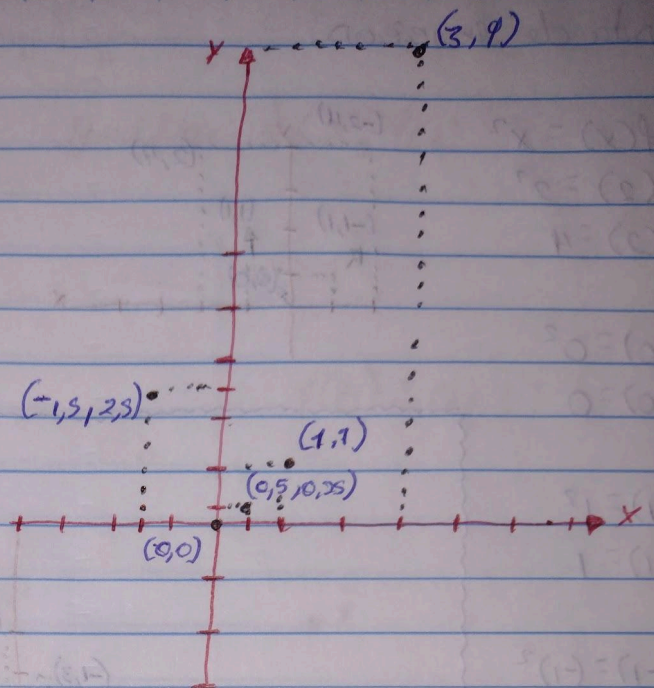 Y
(3, 9)
(-1,5, 2,5)
(1,1)
(0,5, 0,25)
X
(0,0)